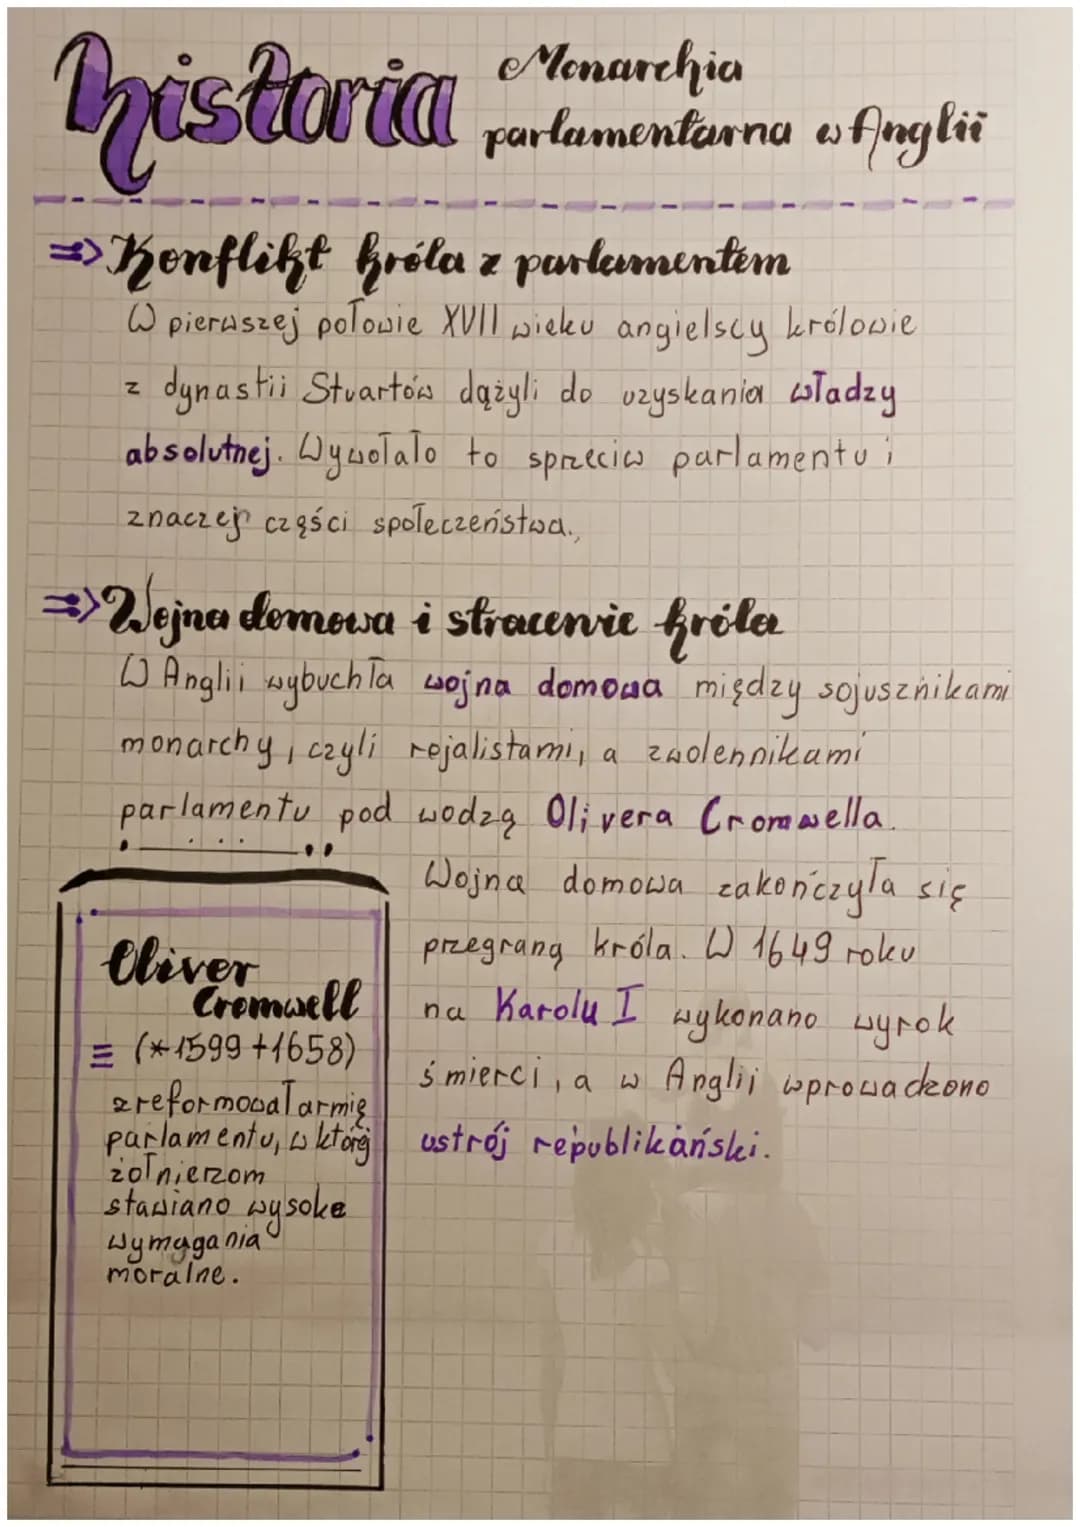 historia
Monarchia
parlamentarna w Anglii
=> Konflikt króla z parlamentem
W pierwszej połowie XVII wieku angielscy królowie
z dynastii Stuartów dążyli do uzyskania władzy
absolutnej. Wywołało to sprzeciw parlamentu i
znaczej części społeczeństwa.
=> Wojna domowa i stracenie króla
W Anglii wybuchła wojna domowa między sojusznikami
monarchy, czyli rojalistami, a zwolennikami
parlamentu pod wodzą Olivera Cromwella.
Wojna domowa zakończyła się
przegraną króla. W 1649 roku
na Karolu I wykonano wyrok
śmierci, a w Anglii wprowadzono
ustrój republikański.
Oliver
Cromwell
(*1599 +1658)
zreformował armię
parlamentu, w której
żołnierzom
stawiano wysoke
wymagania
moralne.